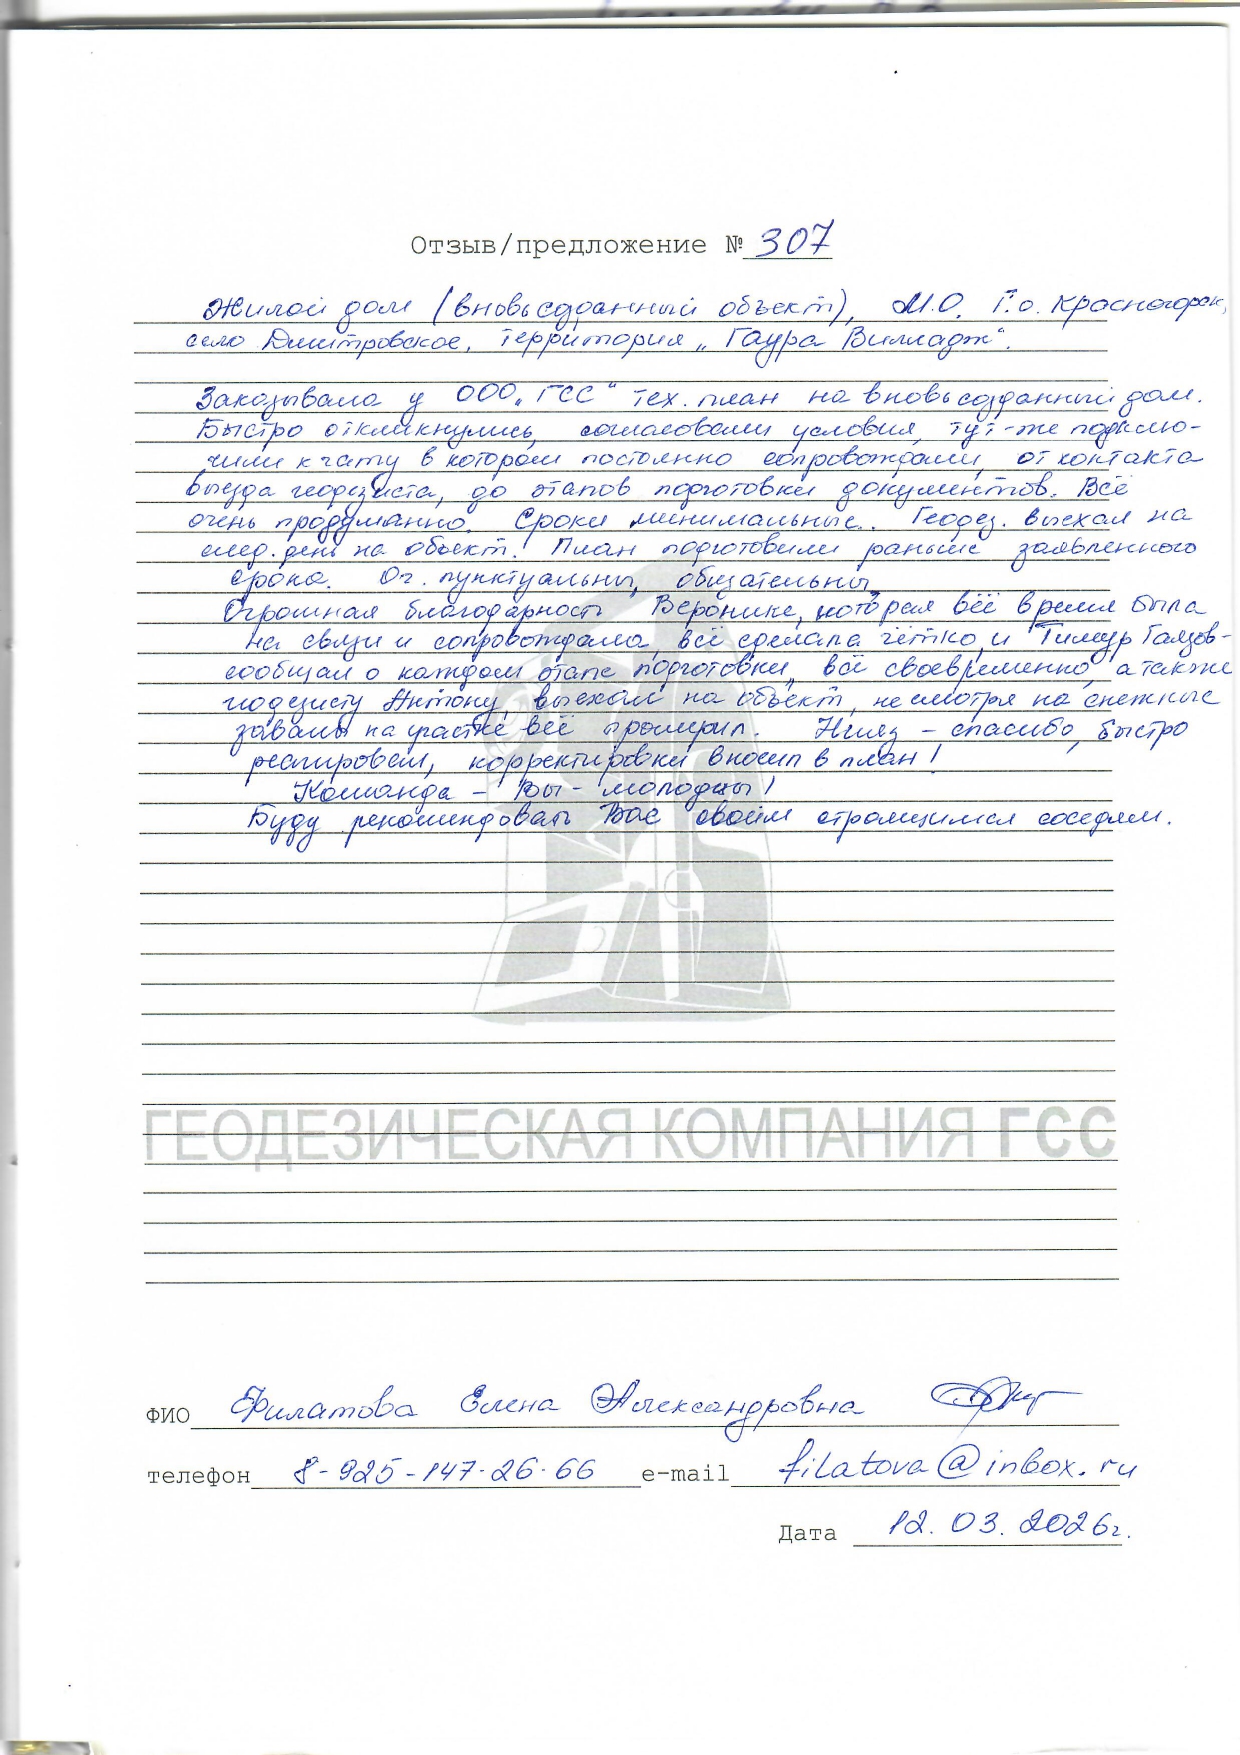 Отзыв/предложение № 307
Жилой дом (вновьсозданный объект), М.О. Г.о. Красногорск,
село Дмитровское, территория „Гаура Вилладж“.
Заказывала у ООО „ГСС“ тех. план на вновьсозданный дом.
Быстро откликнулись, согласовали условия, тут-же подклю-
чили к чату в котором постоянно сопровождали, от контакта
выезда геодезиста, до этапов подготовки документов. Всё
очень продуманно. Сроки минимальные. Геодез. выехал на
след. день на объект. План подготовили раньше заявленного
срока. Оч. пунктуальны, обязательны,
Огромная благодарность Веронике, которая всё время была
на связи и сопровождала, всё сделала чётко, и Тимур
сообщал о каждом этапе подготовки, всё своевременно, а также
геодезисту Антону выехал на объект, не смотря на снежные
завалы на участке всё промерил. Нияз - спасибо, быстро
реагировал, корректировки вносил в план!
Команда - Вы - молодцы!
Буду рекомендовать Вас своим строящимся соседям.
ГЕОДЕЗИЧЕСКАЯ КОМПАНИЯ ГСС
ФИО Филатова Елена Александровна
телефон 8-925-147-26-66 e-mail filatova@inbox.ru
Дата 12.03.2026г.